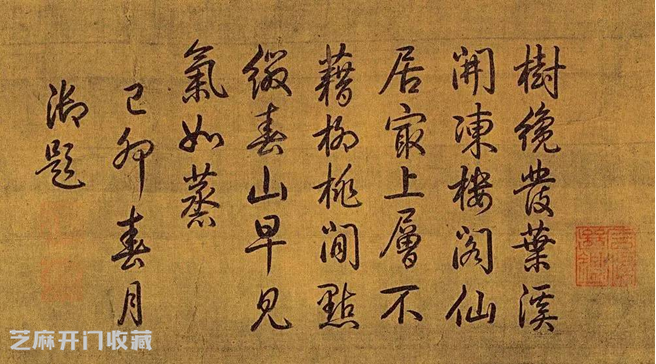 樹纔發葉溪
開凍樓閣仙
居冣上層不
藉柳桃閒點
綴春山早見
氣如蒸
己卯春月
御題
芝麻开门收藏